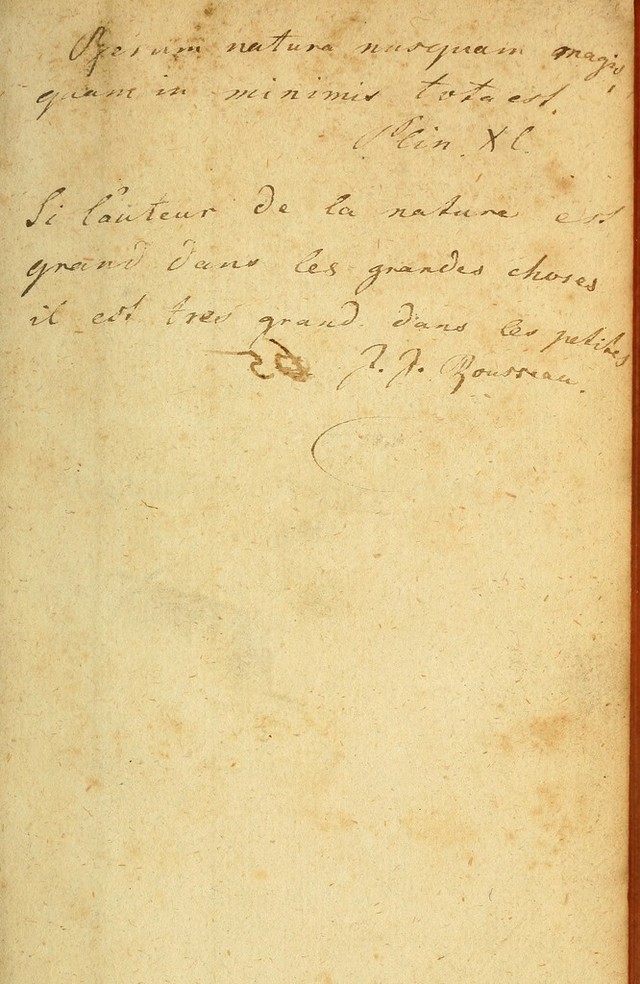 Rerum natura nusquam magis,
quam in minimis tota est.
Plin. XI.
Si l'auteur de la nature est
grand dans les grandes choses
il est tres grand dans les petites
J. J. Rousseau.